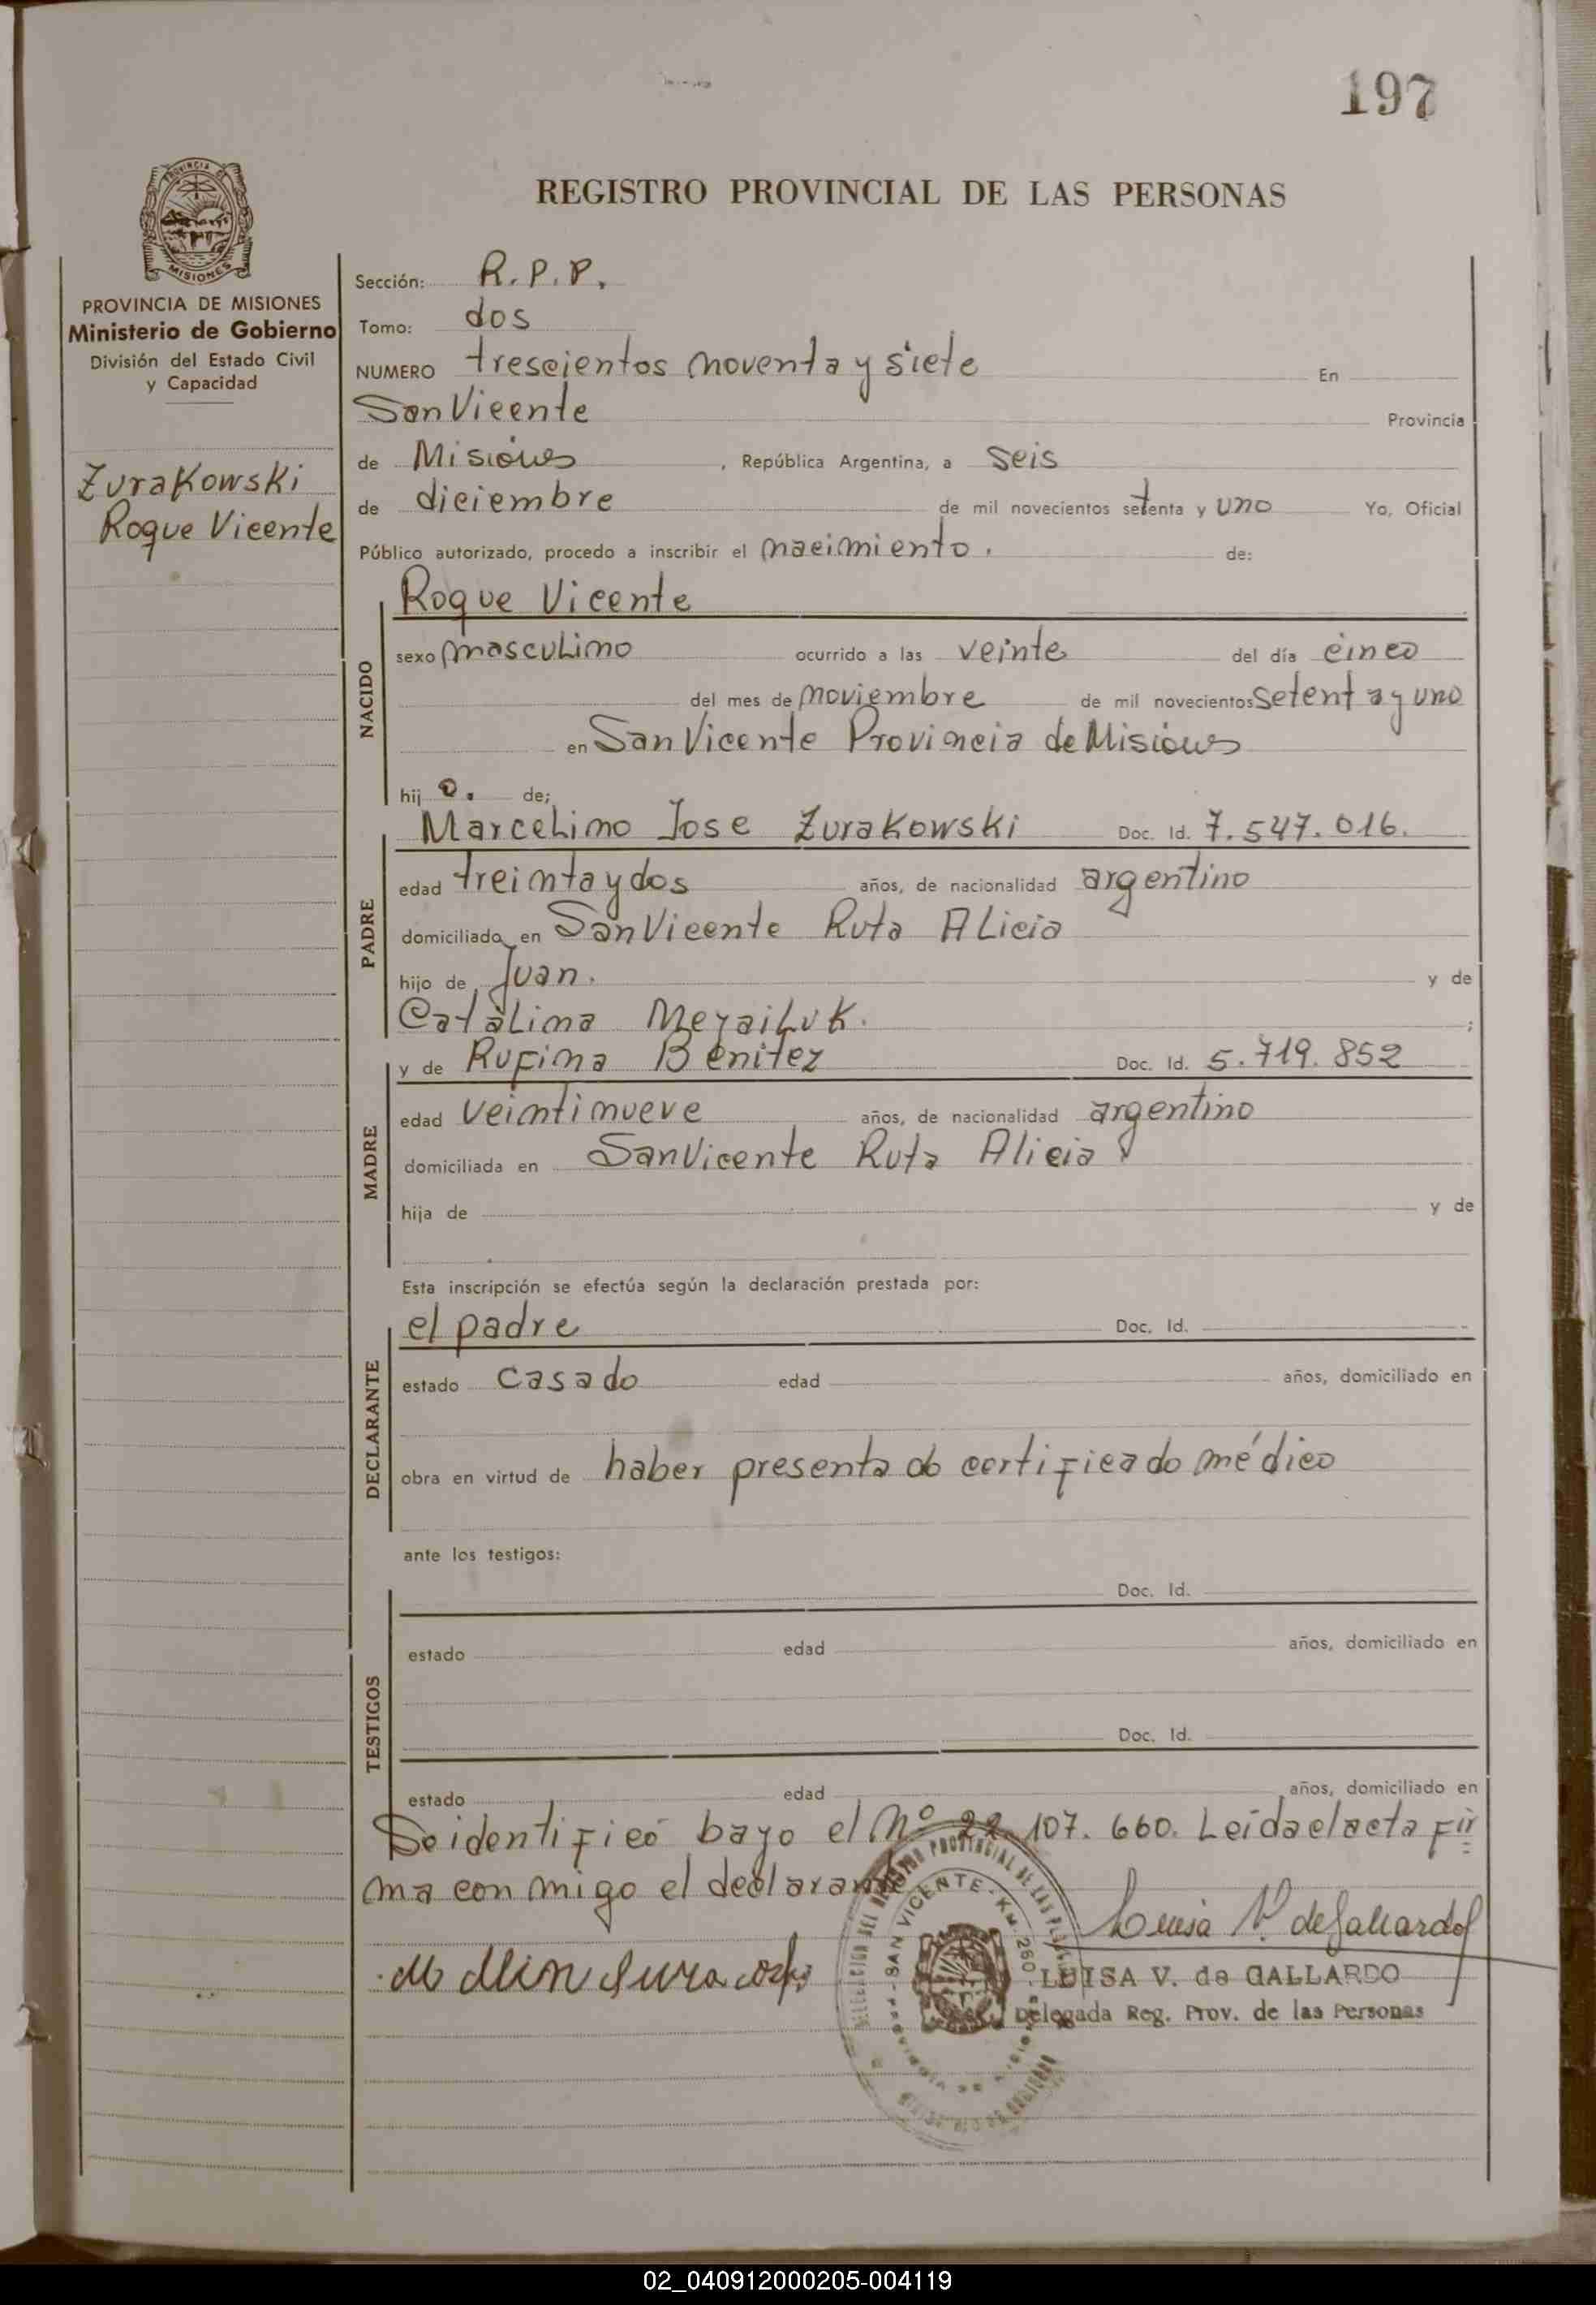 197
REGISTRO PROVINCIAL DE LAS PERSONAS
PROVINCIA DE MISIONES
PROVINCIA DE MISIONES
Ministerio de Gobierno
División del Estado Civil
y Capacidad
Zurakowski
Roque Vicente
Sección: R.P.P.
Tomo: dos
NUMERO trescientos noventa y siete En
San Vicente Provincia
de Misiones, República Argentina, a seis
de diciembre de mil novecientos setenta y uno Yo, Oficial
Público autorizado, procedo a inscribir el nacimiento. de:
NACIDO
Roque Vicente
sexo masculino ocurrido a las veinte del día cinco
del mes de noviembre de mil novecientos setenta y uno
en San Vicente Provincia de Misiones
hij o. de;
PADRE
Marcelino Jose Zurakowski Doc. Id. 7.547.016.
edad treinta y dos años, de nacionalidad argentino
domiciliado en San Vicente Ruta Alicia
hijo de Juan. y de
Catalina ;
MADRE
y de Rufina Benitez Doc. Id. 5.719.852
edad veintinueve años, de nacionalidad argentino
domiciliada en San Vicente Ruta Alicia
hija de y de
Esta inscripción se efectúa según la declaración prestada por:
DECLARANTE
el padre Doc. Id.
estado casado edad años, domiciliado en
obra en virtud de haber presentado certificado médico
ante los testigos:
TESTIGOS
Doc. Id.
estado edad años, domiciliado en
Doc. Id.
estado edad años, domiciliado en
Se identificó bayo el Nº 22.107.660. Leída el acta fir
ma con migo el declarante
Luisa V. de Gallardo
LUISA V. de GALLARDO
Delegada Reg. Prov. de las Personas
SAN VICENTE - KM. 260
02_040912000205-004119